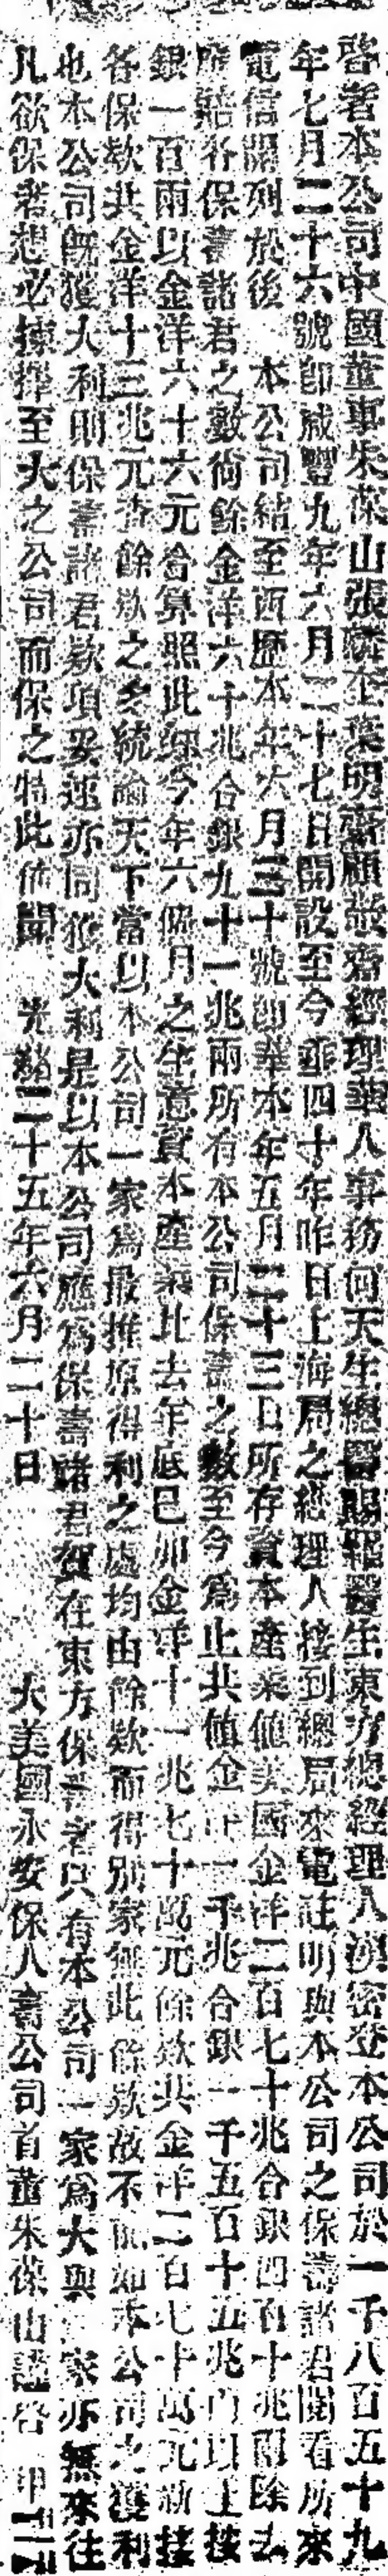 啓者本公司中國董事朱葆山張 葉明齋顧 齋經理華人事務何天生總醫賜 醫生東方總經理人演密登本公司於一千八百五十九
年七月二十六號卽咸豐九年六月二十七日開設至今垂四十年昨日上海局之經理人接到總局來電註明與本公司之保壽諸君閱看所來
電信開列於後 本公司結至西歷本年六月三十號卽華本年五月二十三日所存資本產業値美國金洋二百七十兆合銀四百十兆兩除去
應賠各保壽諸君之數尙餘金洋六千兆合銀九十一兆兩所有本公司保壽之數至今爲止共値金洋一千兆合銀一千五百十五兆 以上按
銀一百兩以金洋六十六元合算照此 今年六個月之生意資本產業比去年底已加金洋十一兆七十萬元餘欵共金洋二百七十萬元新接
各保欵共金洋十三兆元查餘欵之多統論天下當以本公司一家爲最推原得利之處均由餘欵而得別家無此餘欵故不能如本公司之獲利
也本公司旣獲大利則保壽諸君欵項妥速亦同獲大利是以本公司應爲保壽諸君賀在東方保壽者只有本公司一家爲大與 家亦無來往
凡欲保者想必揀擇至大之公司而保之特此佈聞 光緒二十五年六月二十日 大美國永安保人壽公司首董朱葆山謹啓